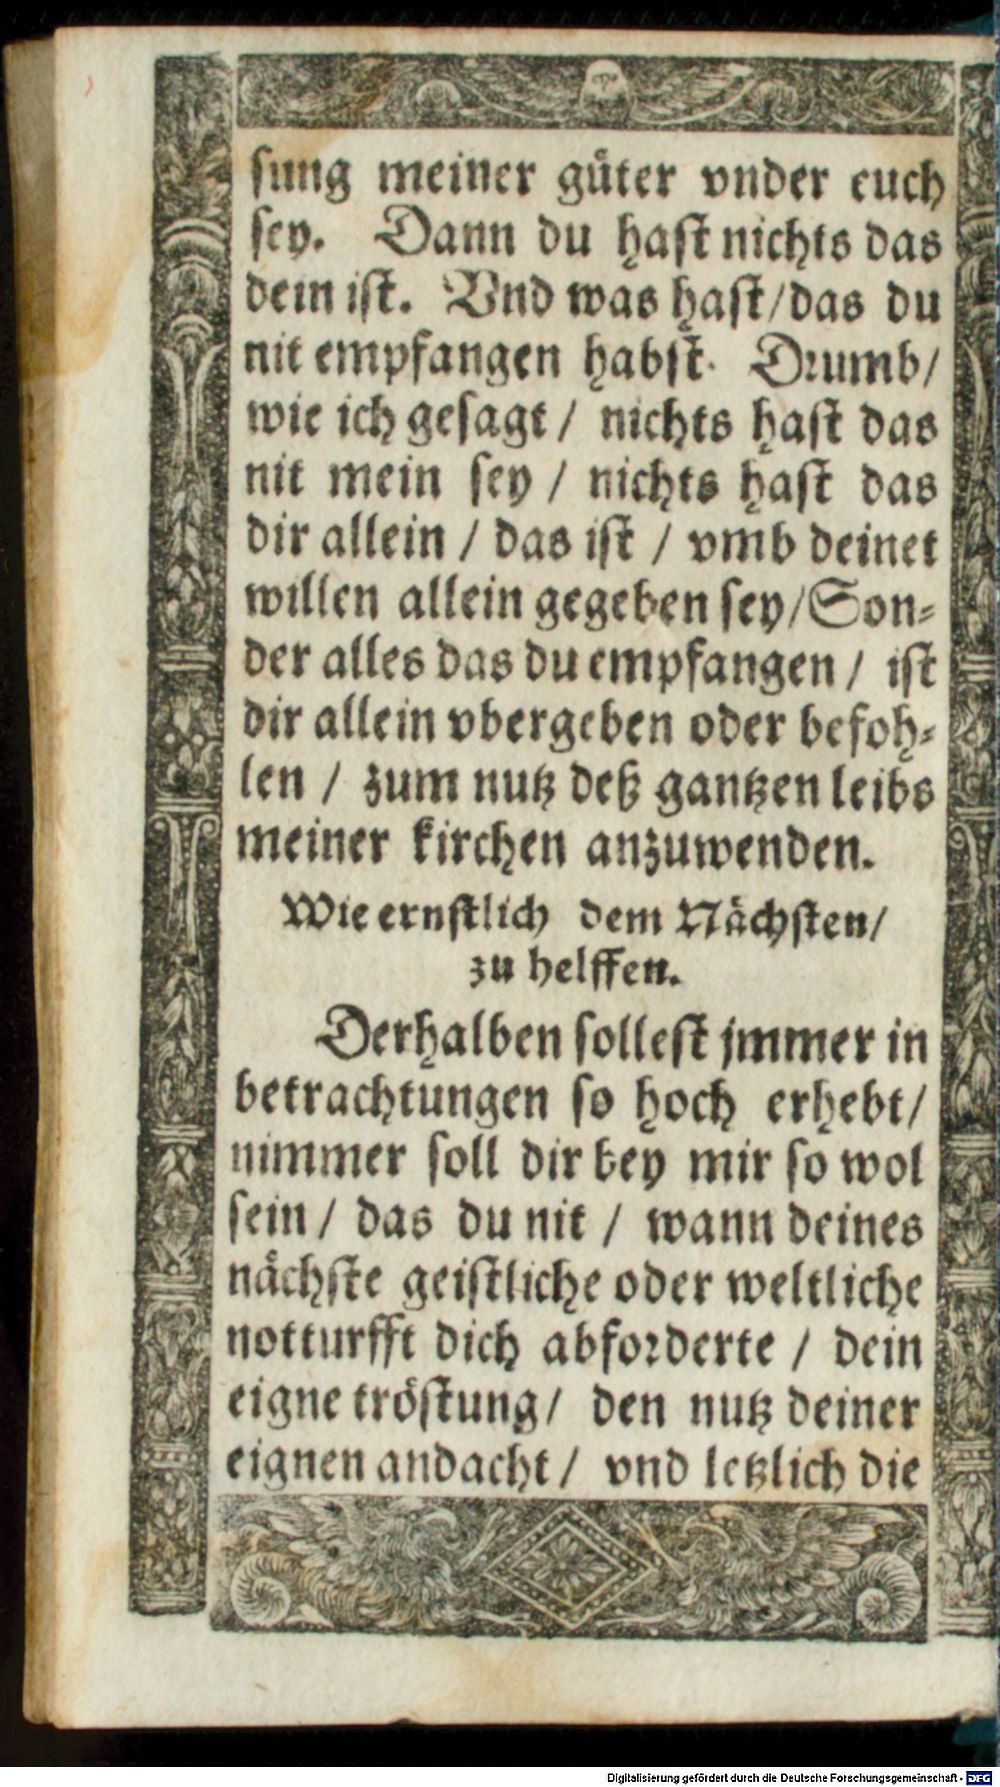 sung meiner güter vnder euch
sey. Dann du hast nichts das
dein ist. Vnd was hast/das du
nit empfangen habst. Drumb/
wie ich gesagt / nichts hast das
nit mein sey / nichts hast das
dir allein / das ist / vmb deinet
willen allein gegeben sey/Son=
der alles das du empfangen / ist
dir allein vbergeben oder befoh=
len / zum nutz deß gantzen leibs
meiner kirchen anzuwenden.
Wie ernstlich dem Nächsten/
zu helffen.
Derhalben sollest jmmer in
betrachtungen so hoch erhebt/
nimmer soll dir bey mir so wol
sein / das du nit / wann deines
nächste geistliche oder weltliche
notturfft dich abforderte / dein
eigne tröstung/ den nutz deiner
eignen andacht / vnd letzlich die
Digitalisierung gefördert durch die Deutsche Forschungsgemeinschaft - DFG